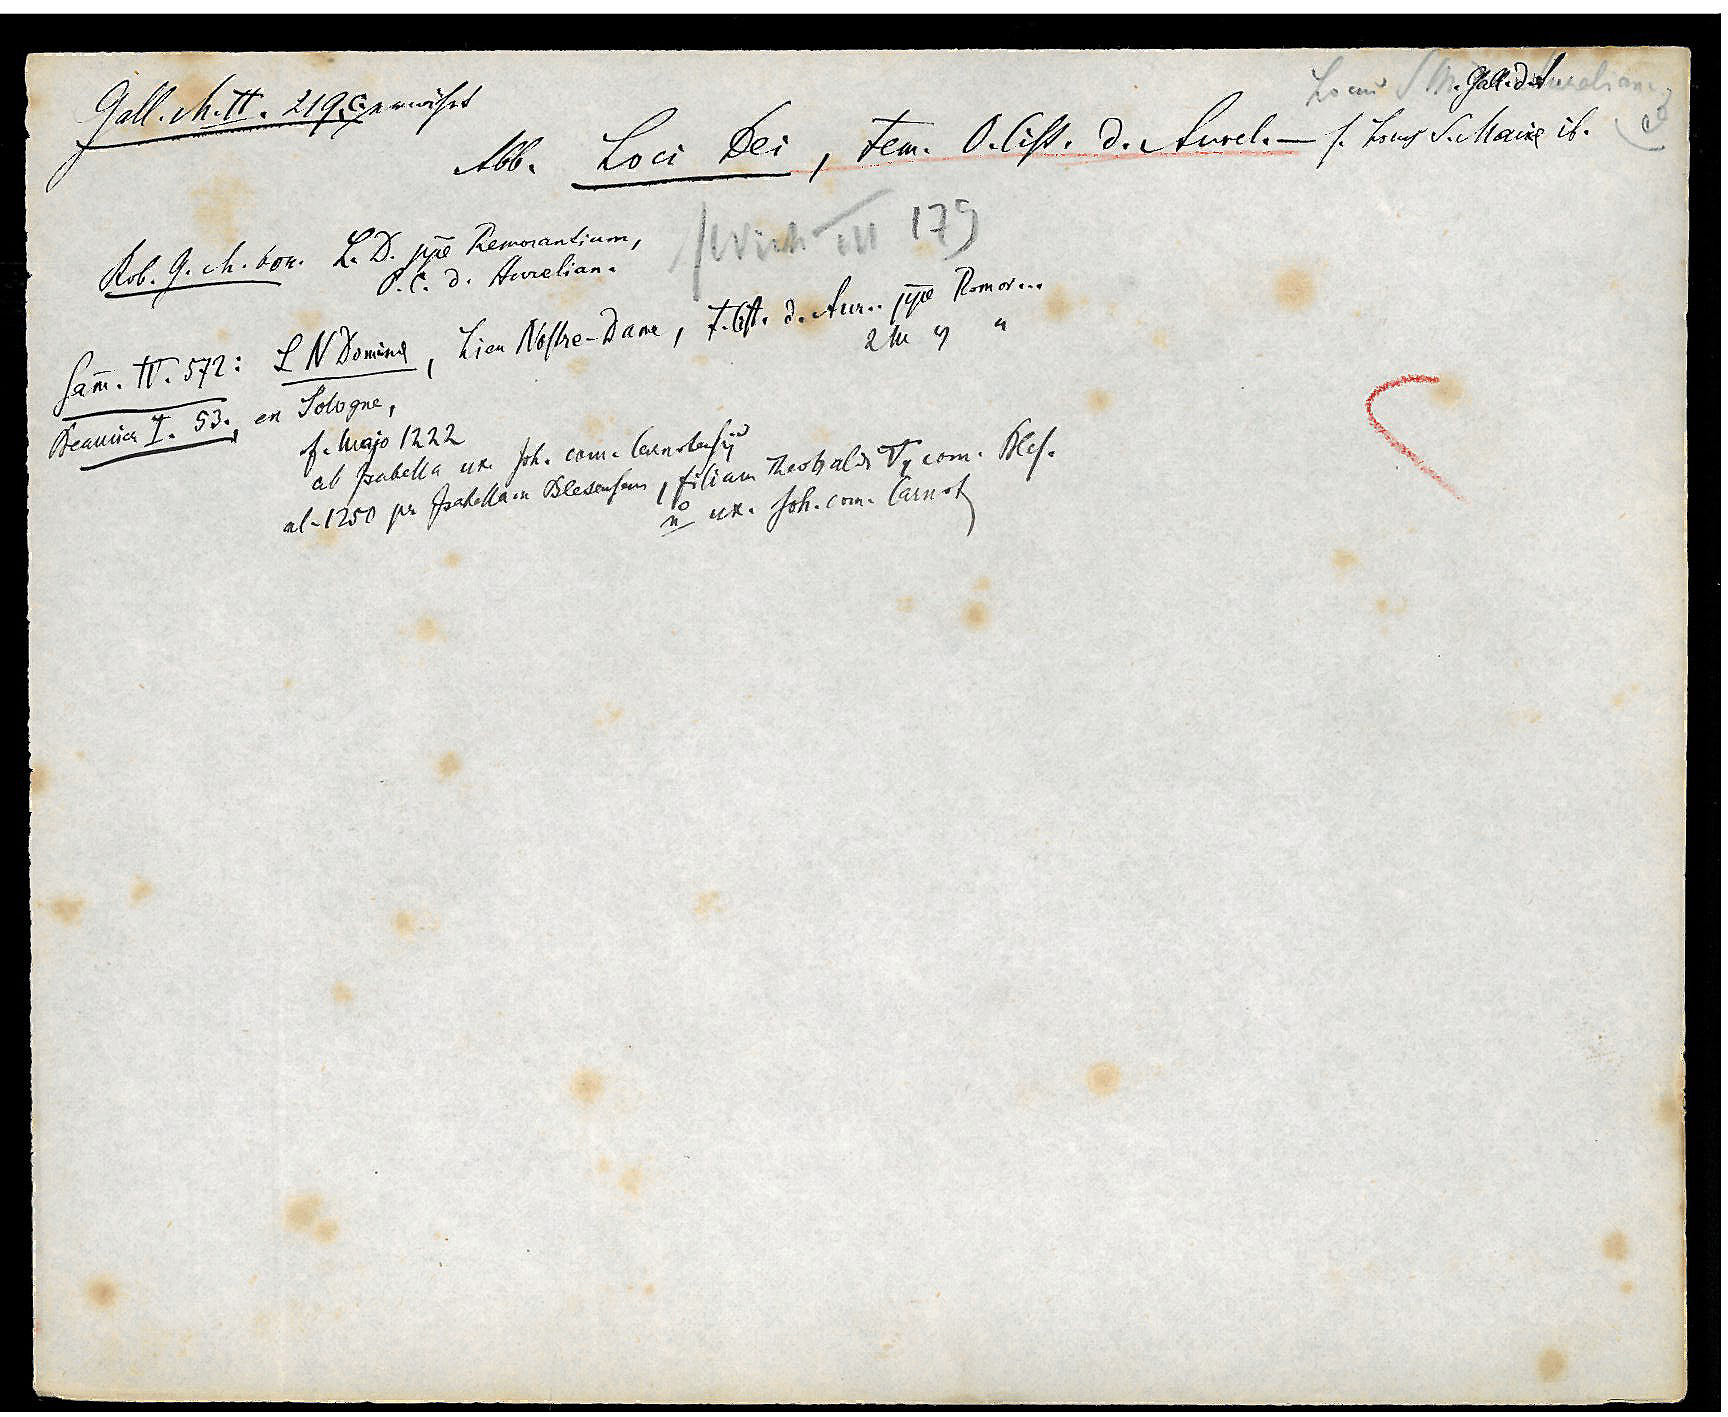 Gall. ch. II. 219. C. erwähnt
Abb. Loci Dei, Fem. O. Cist. d. Aurel. — s. Locus S. Mariae ib.
Gall. d.
Rob. G. ch. bor. L. D. ppe Remorantium,
O. C. d. Aurelian.
III 179
Sam̅. IV. 572: L N Dominae, Lieu Nostre-Dame, F. Cist. d. Aur.. ppe Romor...
2 M " "
Beaunier I. 53. en Sologne,
f. Majo 1222
ab Isabella ux. Joh. com. Carnotensis
al. 1250 per Isabellam Blesensem, filiam Theobaldi V, com. Bles.
no ux. Joh. com. Carnot